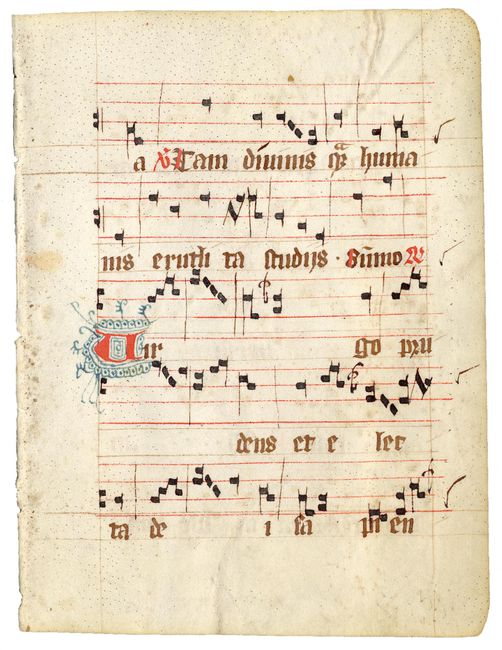 a ℣ Tam diuinis qͣꝫ huma
nis erudi ta studijs · Sūmo ℟
Uir go pru
dens et e lec
ta de i sa pi en